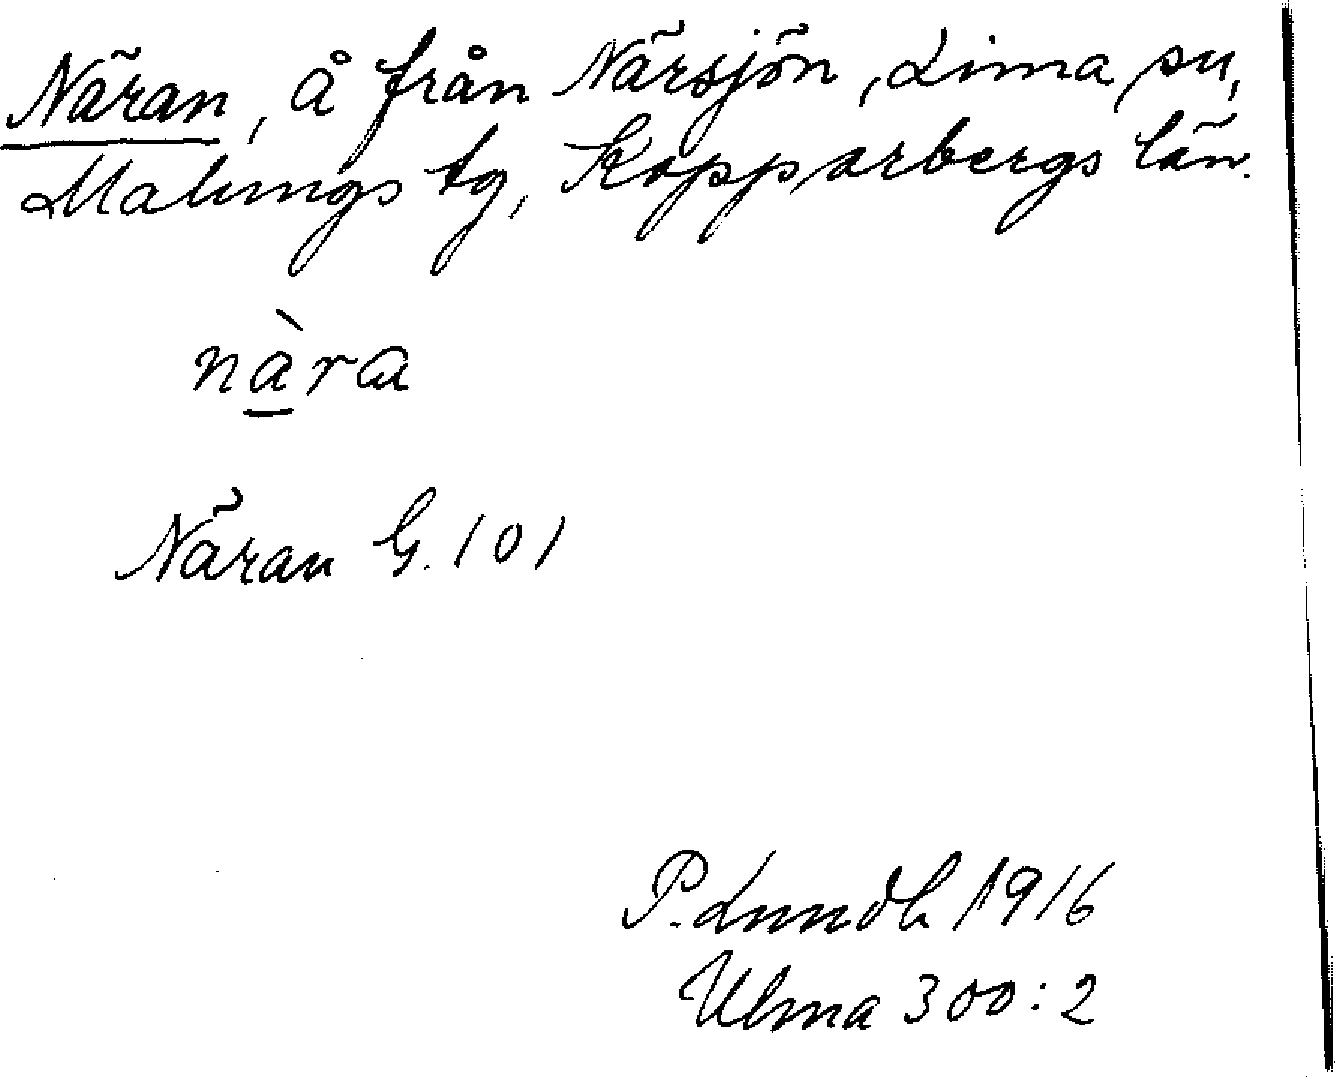 Näran, å från Närsjön, Lima sn,
Malungs tg, Kopparbergs län.
nàra
Näran G. 101
P. Lundh 1916
Ulma 300:2